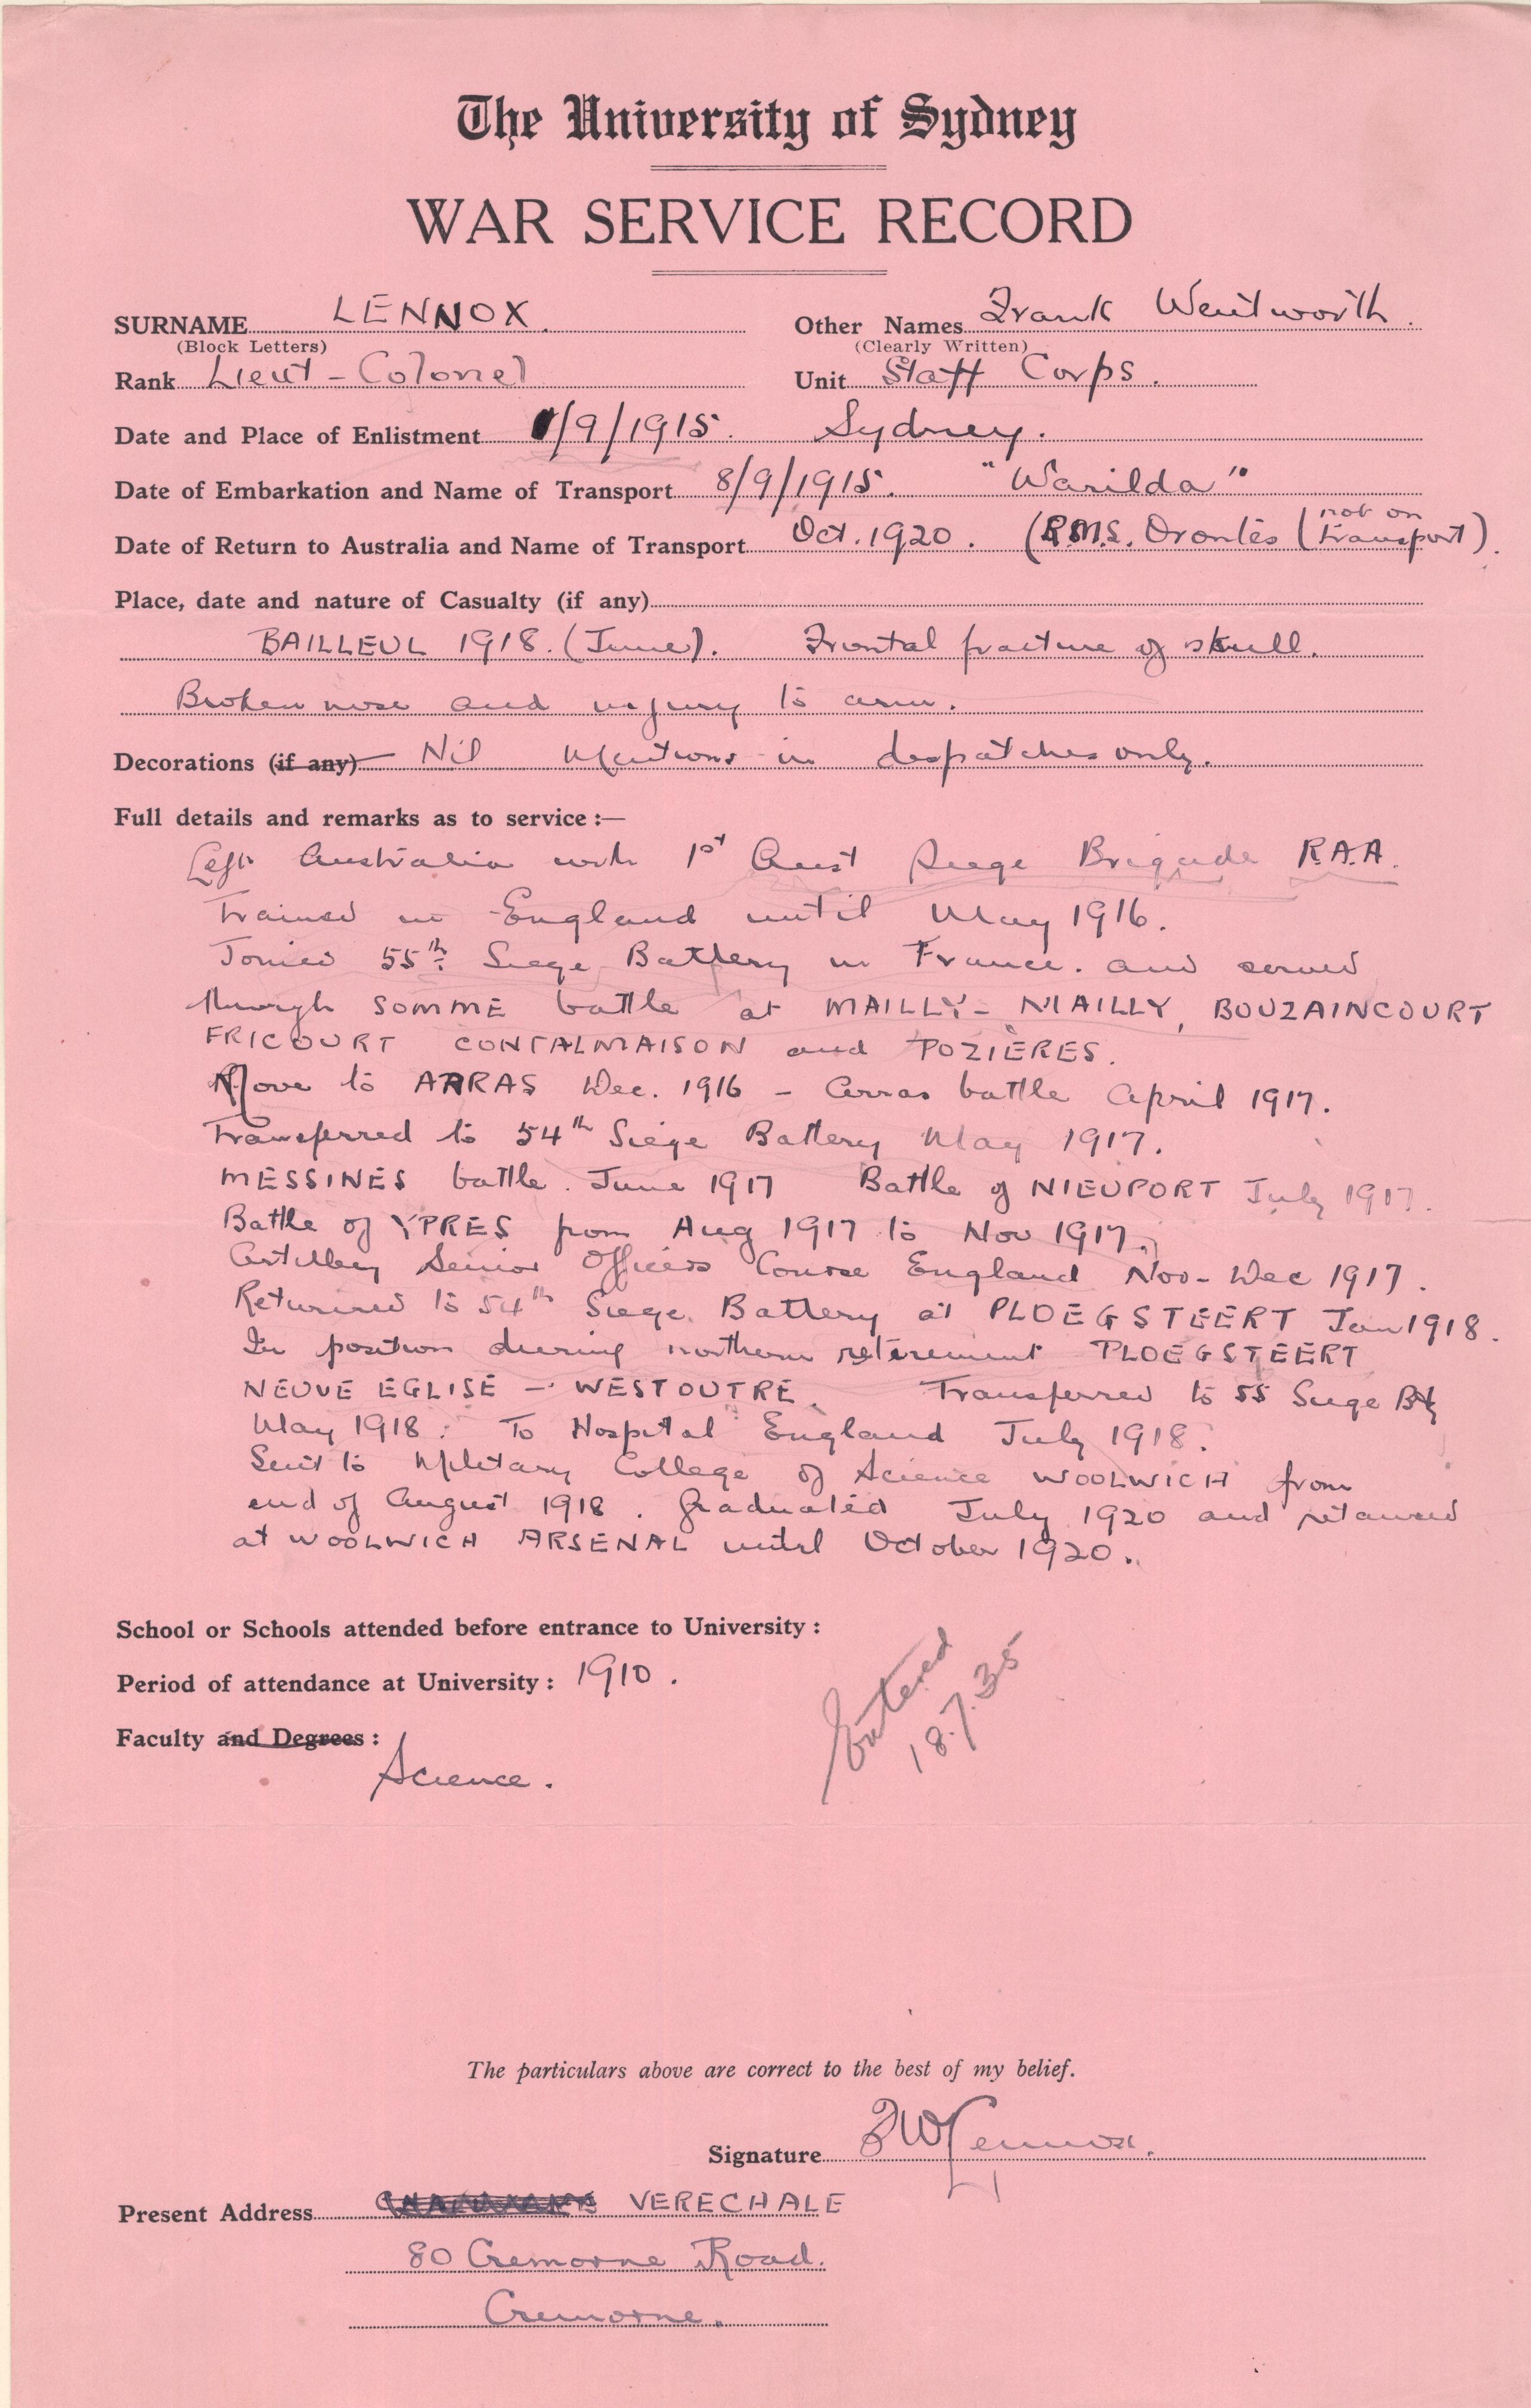 The University of Sydney
WAR SERVICE RECORD
SURNAME LENNOX. Other Names Frank Wentworth.
(Block Letters) (Clearly Written)
Rank Lieut-Colonel Unit Staff Corps.
Date and Place of Enlistment 1/9/1915. Sydney.
Date of Embarkation and Name of Transport 8/9/1915. "Warilda"
Date of Return to Australia and Name of Transport Oct. 1920. (R.M.S. Orontes (not on transport).
Place, date and nature of Casualty (if any)
BAILLEUL 1918. (June). Frontal fracture of skull.
Broken nose and injury to arm.
Decorations (if any) Nil Mentions in despatches only.
Full details and remarks as to service :—
Left Australia with 1st Aust Siege Brigade R.A.A.
Trained in England until May 1916.
Joined 55th Siege Battery in France. and served
through SOMME battle at MAILLY-MAILLY, BOUZAINCOURT
FRICOURT CONTALMAISON and POZIÈRES.
Move to ARRAS Dec. 1916 - Arras battle April 1917.
Transferred to 54th Siege Battery May 1917.
MESSINES battle. June 1917 Battle of NIEUPORT July 1917.
Battle of YPRES from Aug 1917 to Nov 1917.
Artillery Senior Officers Course England Nov-Dec 1917.
Returned to 54th Siege Battery at PLOEGSTEERT Jan 1918.
In position during northern retirement PLOEGSTEERT
NEUVE EGLISE - WESTOUTRE. Transferred to 55 Siege Bty
May 1918. To Hospital England July 1918.
Sent to Military College of Science WOOLWICH from
end of August 1918. Graduated July 1920 and retained
at WOOLWICH ARSENAL until October 1920.
School or Schools attended before entrance to University :
Period of attendance at University : 1910.
Faculty and Degrees :
Science.
Entered
18.7.35
The particulars above are correct to the best of my belief.
Signature FWLennox.
Present Address VERECHALE
80 Cremorne Road.
Cremorne.